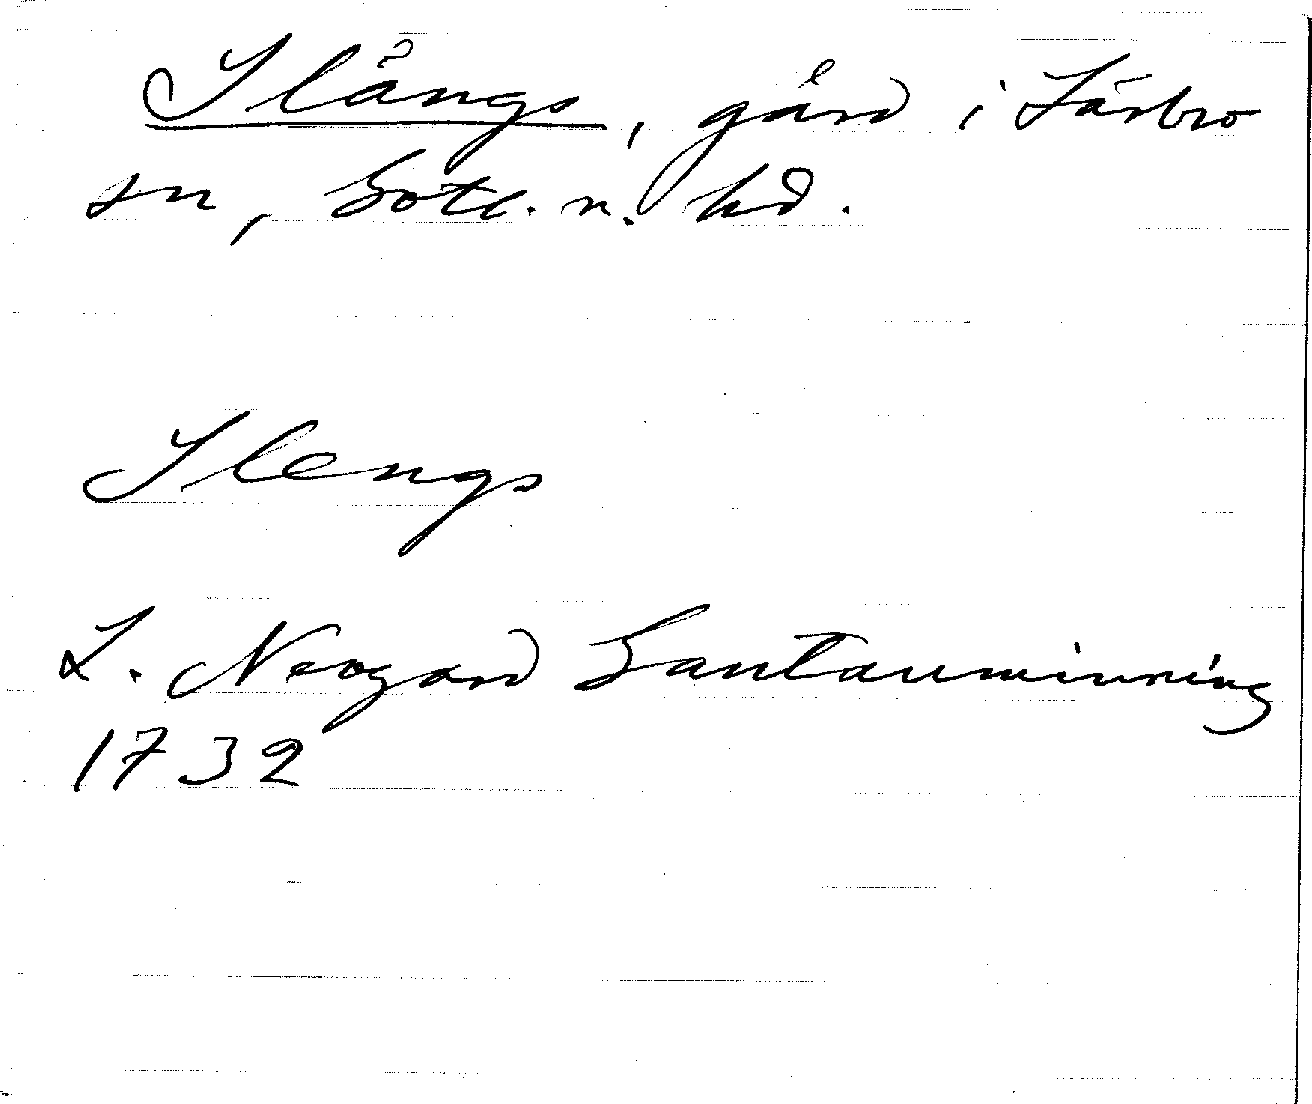 Ilångs, gård i Lärbro
sn, Gotl. n. hd.
Ilengs
L. Neogard Gautauminning
1732